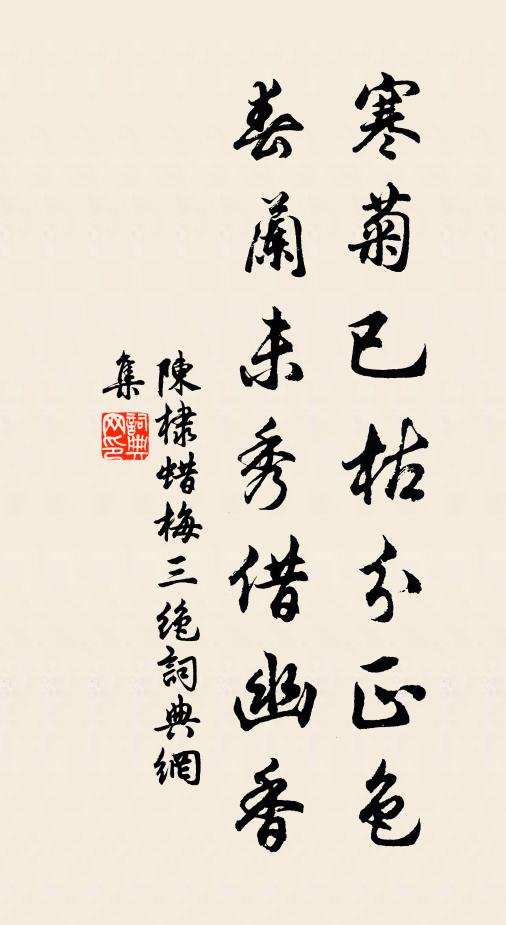 寒菊已枯分正色
春蘭未秀借幽香
陳棣蜡梅三絶詞典網
集
詞典网印